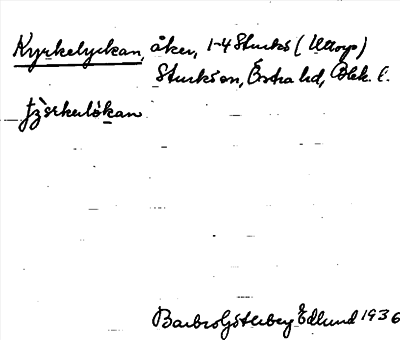 Kyrkelyckan, åker, 1-4 Sturkö (Utторp)
Sturkö sn, Östra hd, Blek. l.
Barbro Göterberg Edlund 1936